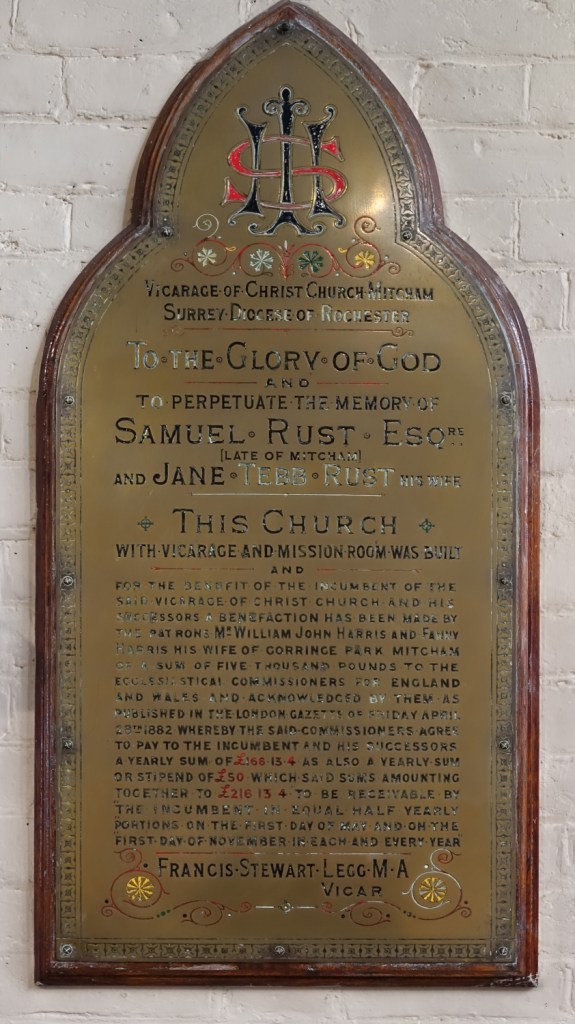 IHS
VICARAGE·OF·CHRIST CHURCH·MITCHAM
SURREY·DIOCESE OF ROCHESTER
TO·THE·GLORY·OF·GOD
AND
TO PERPETUATE·THE MEMORY·OF
SAMUEL·RUST·ESQRE
[LATE OF MITCHAM]
AND JANE·TEBB·RUST HIS WIFE
THIS CHURCH
WITH·VICARAGE AND MISSION·ROOM·WAS BUILT
AND
FOR THE BENEFIT OF THE INCUMBENT OF THE
SAID VICARAGE OF CHRIST CHURCH·AND HIS
SUCCESSORS A BENEFACTION HAS BEEN MADE BY
THE PATRONS MR WILLIAM JOHN HARRIS AND FANNY
HARRIS HIS WIFE OF GORRINGE PARK MITCHAM
OF A SUM OF FIVE THOUSAND POUNDS TO THE
ECCLESIASTICAL COMMISSIONERS FOR ENGLAND
AND WALES AND ACKNOWLEDGED BY THEM AS
PUBLISHED IN THE LONDON GAZETTE OF FRIDAY APRIL
28TH 1882 WHEREBY THE SAID COMMISSIONERS AGREE
TO PAY TO THE INCUMBENT AND HIS SUCCESSORS
A YEARLY SUM OF £166·13·4 AS ALSO A YEARLY SUM
OR STIPEND OF £50 WHICH SAID SUMS AMOUNTING
TOGETHER TO £216·13·4 TO BE RECEIVABLE BY
THE INCUMBENT IN EQUAL HALF YEARLY
PORTIONS ON THE FIRST DAY OF MAY AND ON THE
FIRST DAY OF NOVEMBER IN EACH AND EVERY YEAR
FRANCIS·STEWART·LEGG·M·A
VICAR